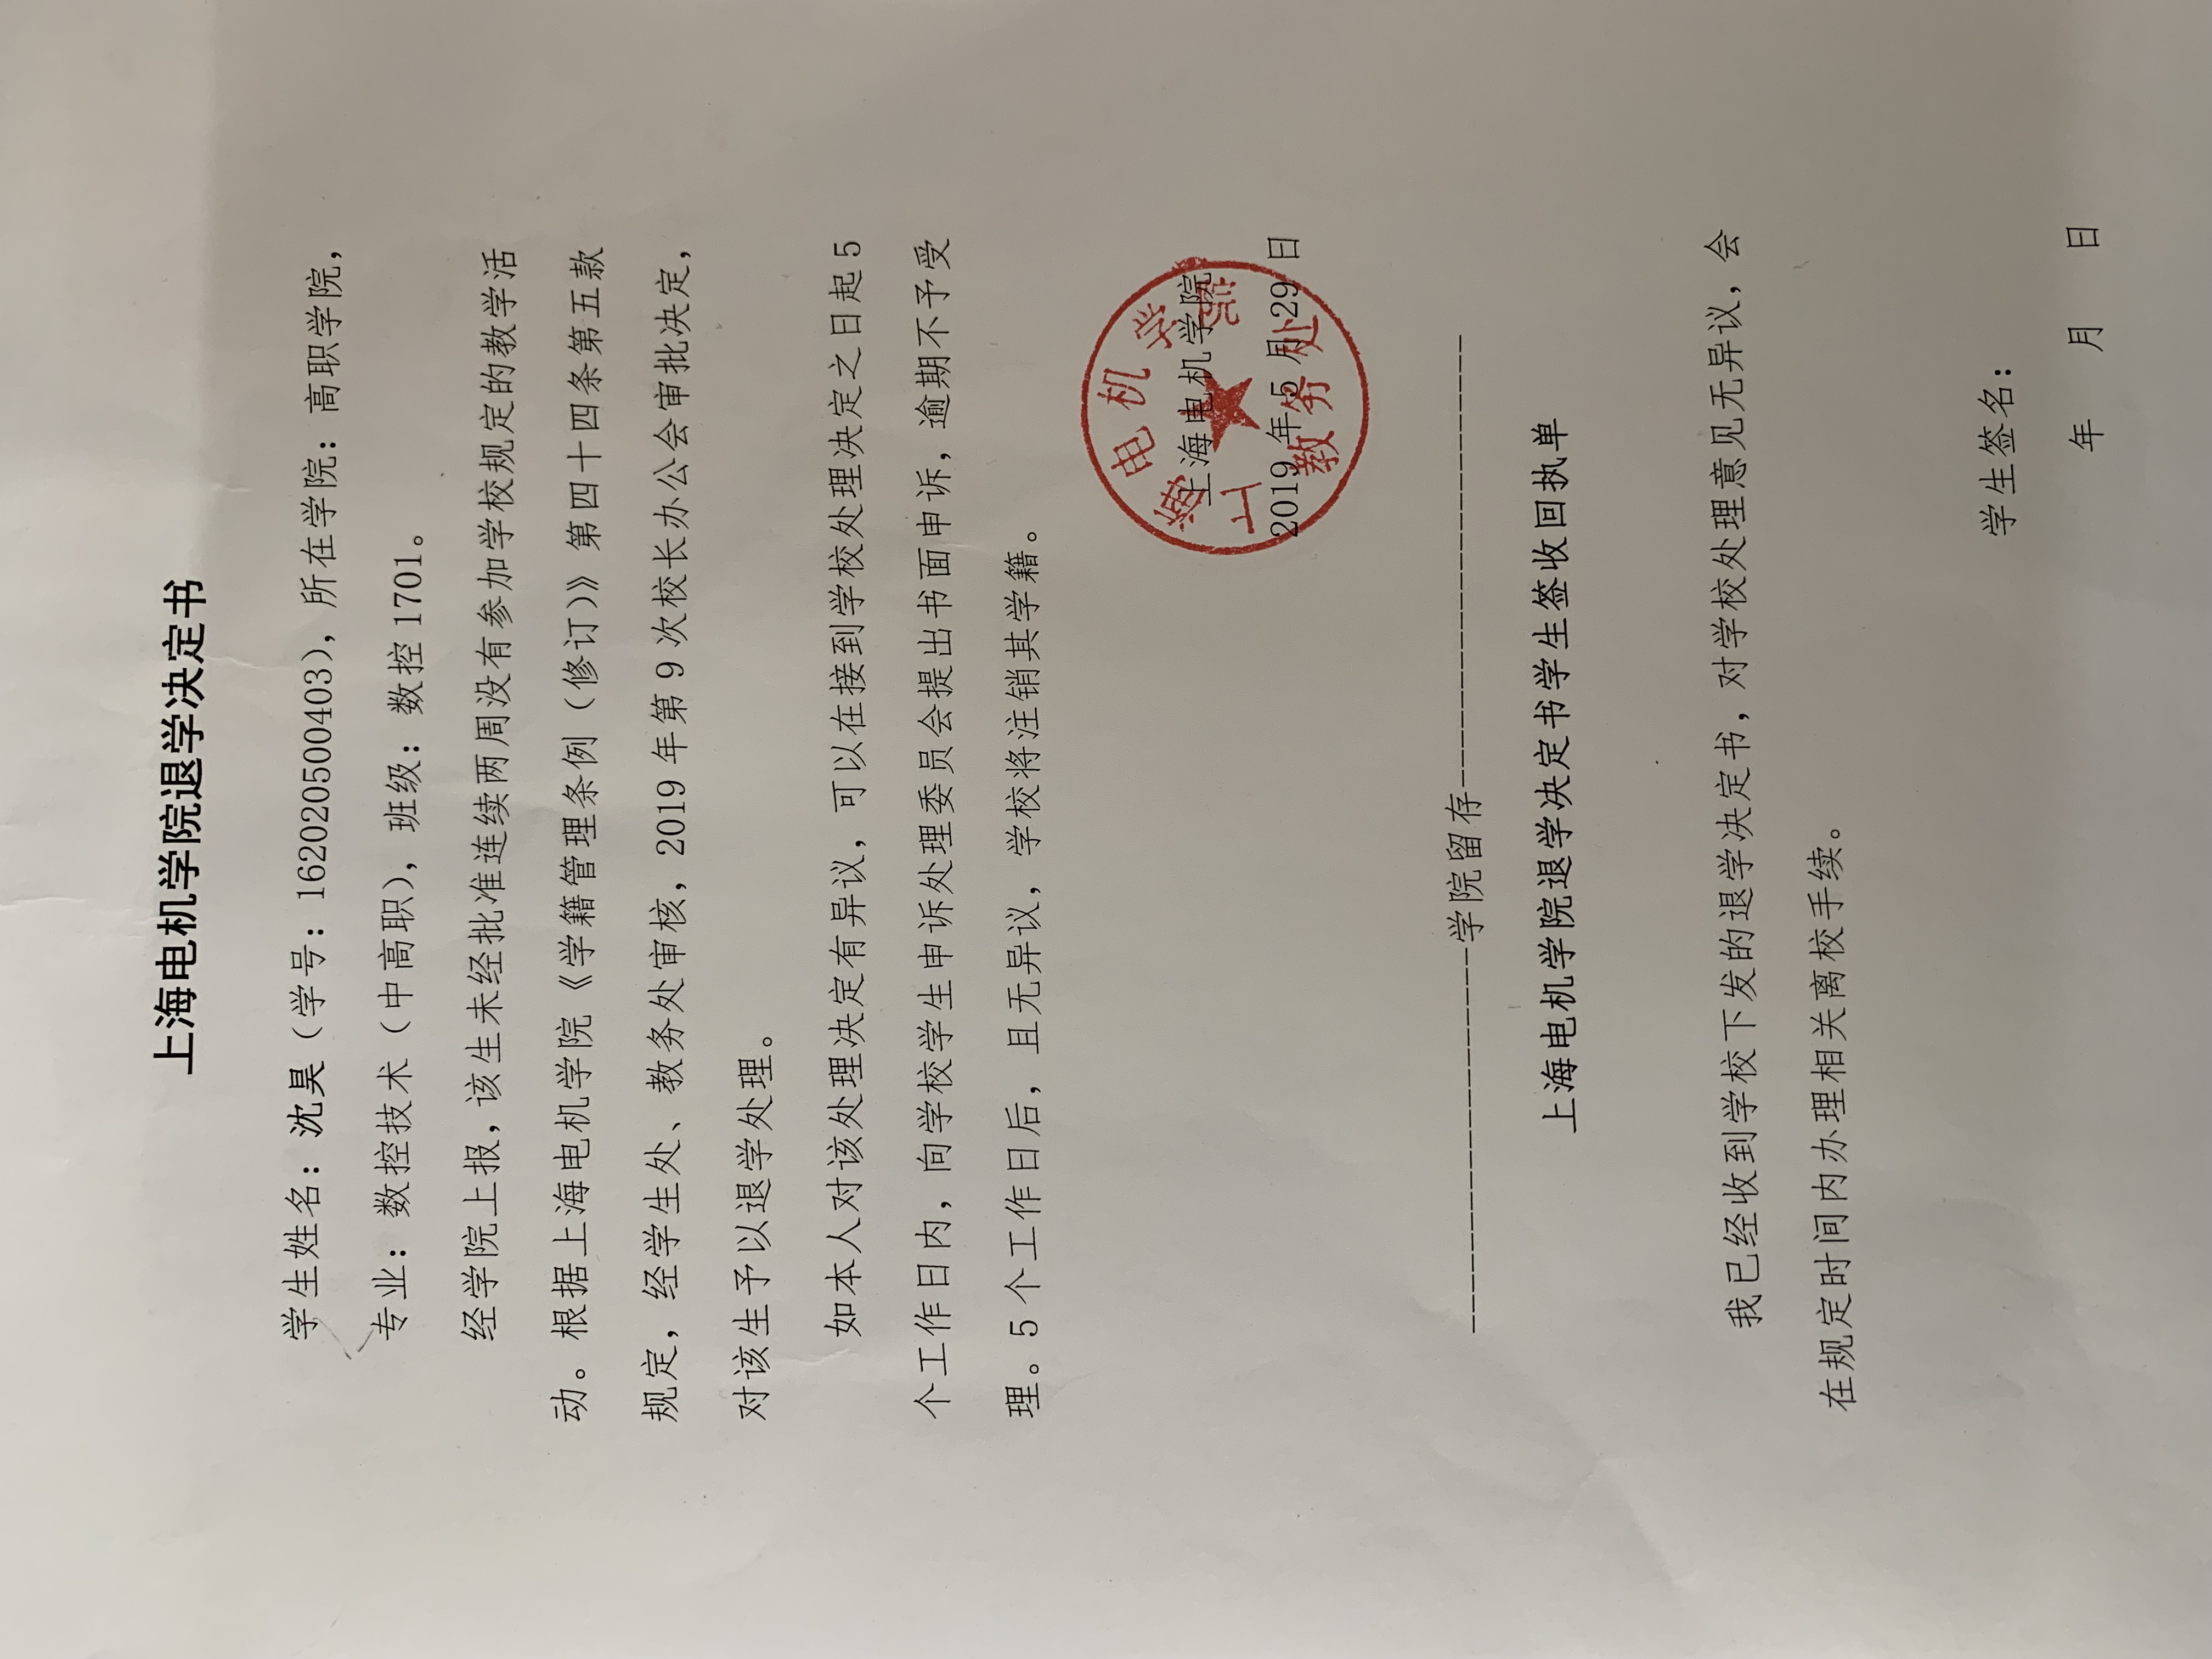 上海电机学院退学决定书
学生姓名：沈昊（学号：162020500403），所在学院：高职学院，
专业：数控技术（中高职），班级：数控 1701。
经学院上报，该生未经批准连续两周没有参加学校规定的教学活
动。根据上海电机学院《学籍管理条例（修订）》第四十四条第五款
规定，经学生处、教务处审核，2019 年第 9 次校长办公会审批决定，
对该生予以退学处理。
如本人对该处理决定有异议，可以在接到学校处理决定之日起 5
个工作日内，向学校学生申诉处理委员会提出书面申诉，逾期不予受
理。5 个工作日后，且无异议，学校将注销其学籍。
上海电机学院
2019 年 5 月 29 日
上海电机学院
教务处
学院留存
上海电机学院退学决定书学生签收回执单
我已经收到学校下发的退学决定书，对学校处理意见无异议，会
在规定时间内办理相关离校手续。
学生签名：
年 月 日